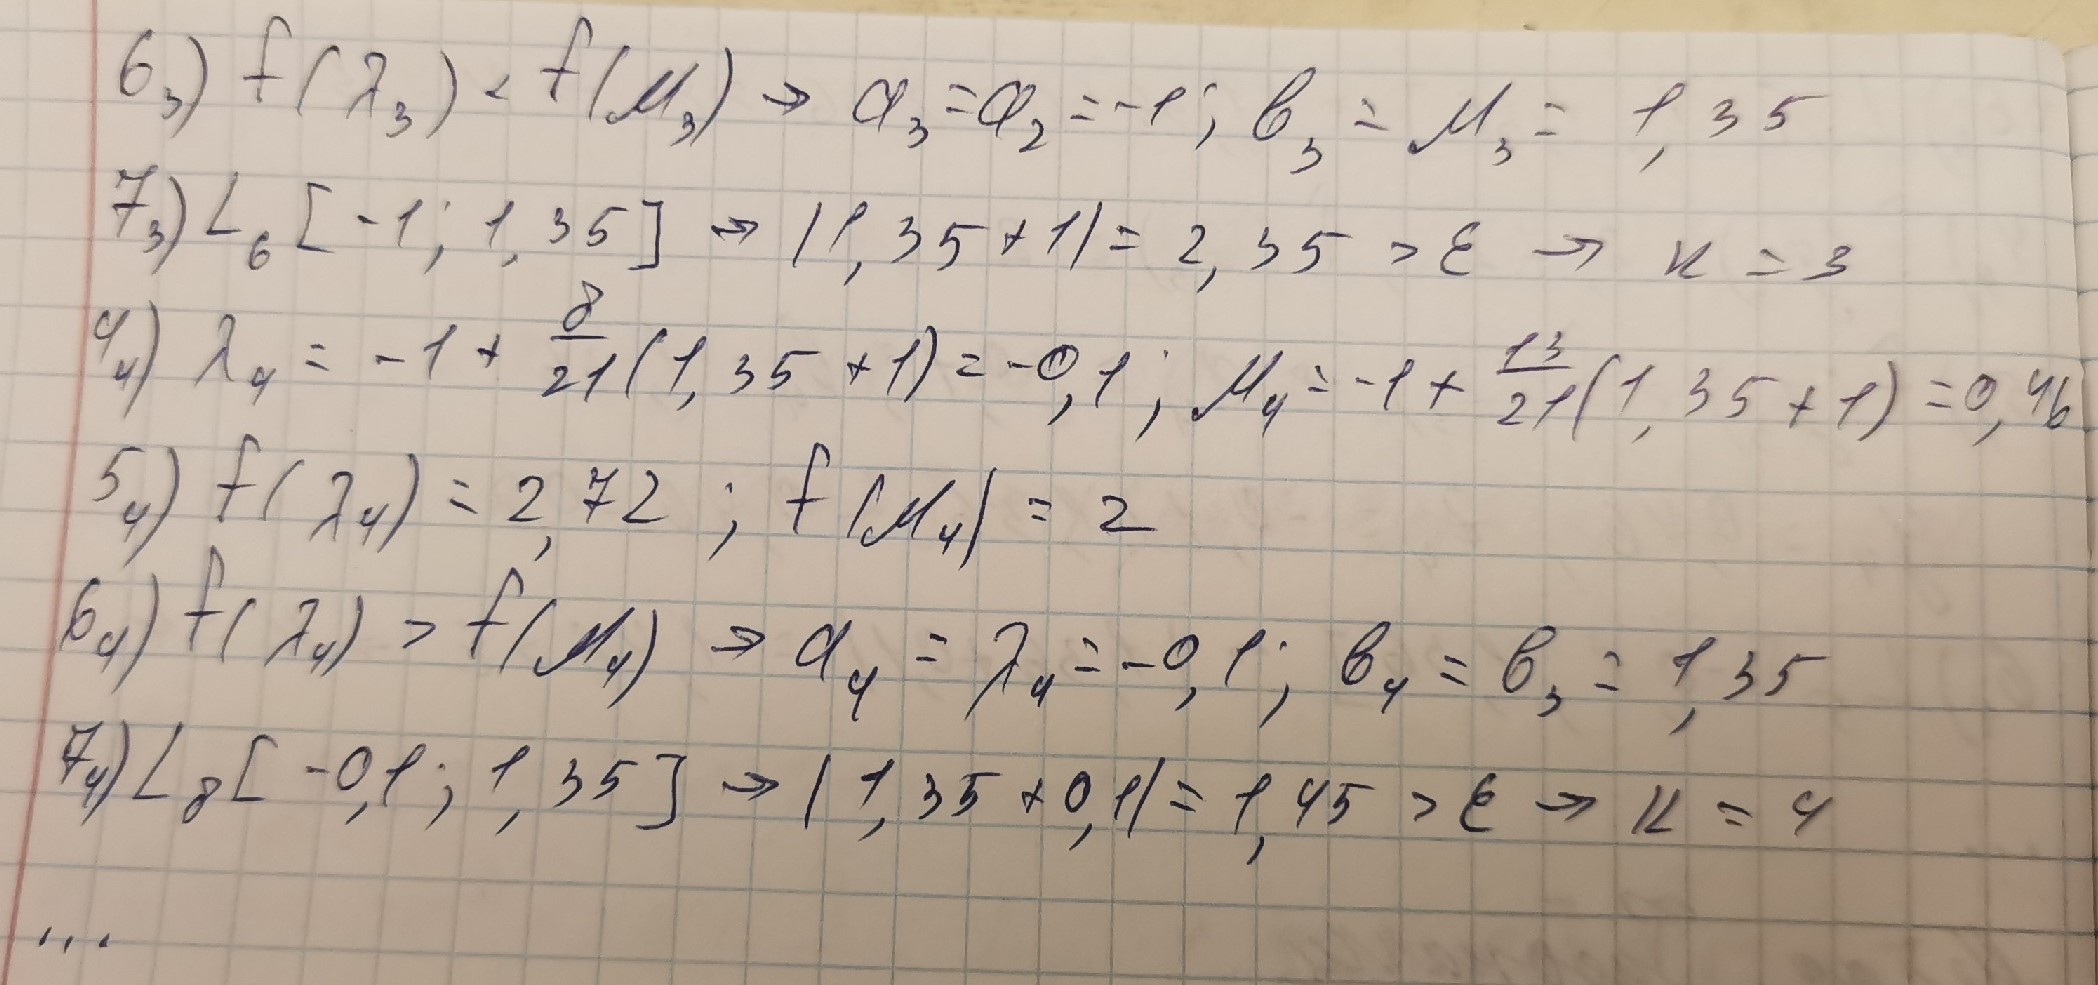 6₃) f(λ₃) < f(μ₃) → a₃ = a₂ = -1; b₃ = μ₃ = 1,35
7₃) L₆ [-1; 1,35] → |1,35 + 1| = 2,35 > ε → k = 3
4₄) λ₄ = -1 + 8/21 (1,35 + 1) = -0,1; μ₄ = -1 + 13/21 (1,35 + 1) = 0,46
5₄) f(λ₄) = 2,72; f(μ₄) = 2
6₄) f(λ₄) > f(μ₄) → a₄ = λ₄ = -0,1; b₄ = b₃ = 1,35
7₄) L₈ [-0,1; 1,35] → |1,35 + 0,1| = 1,45 > ε → k = 4
...